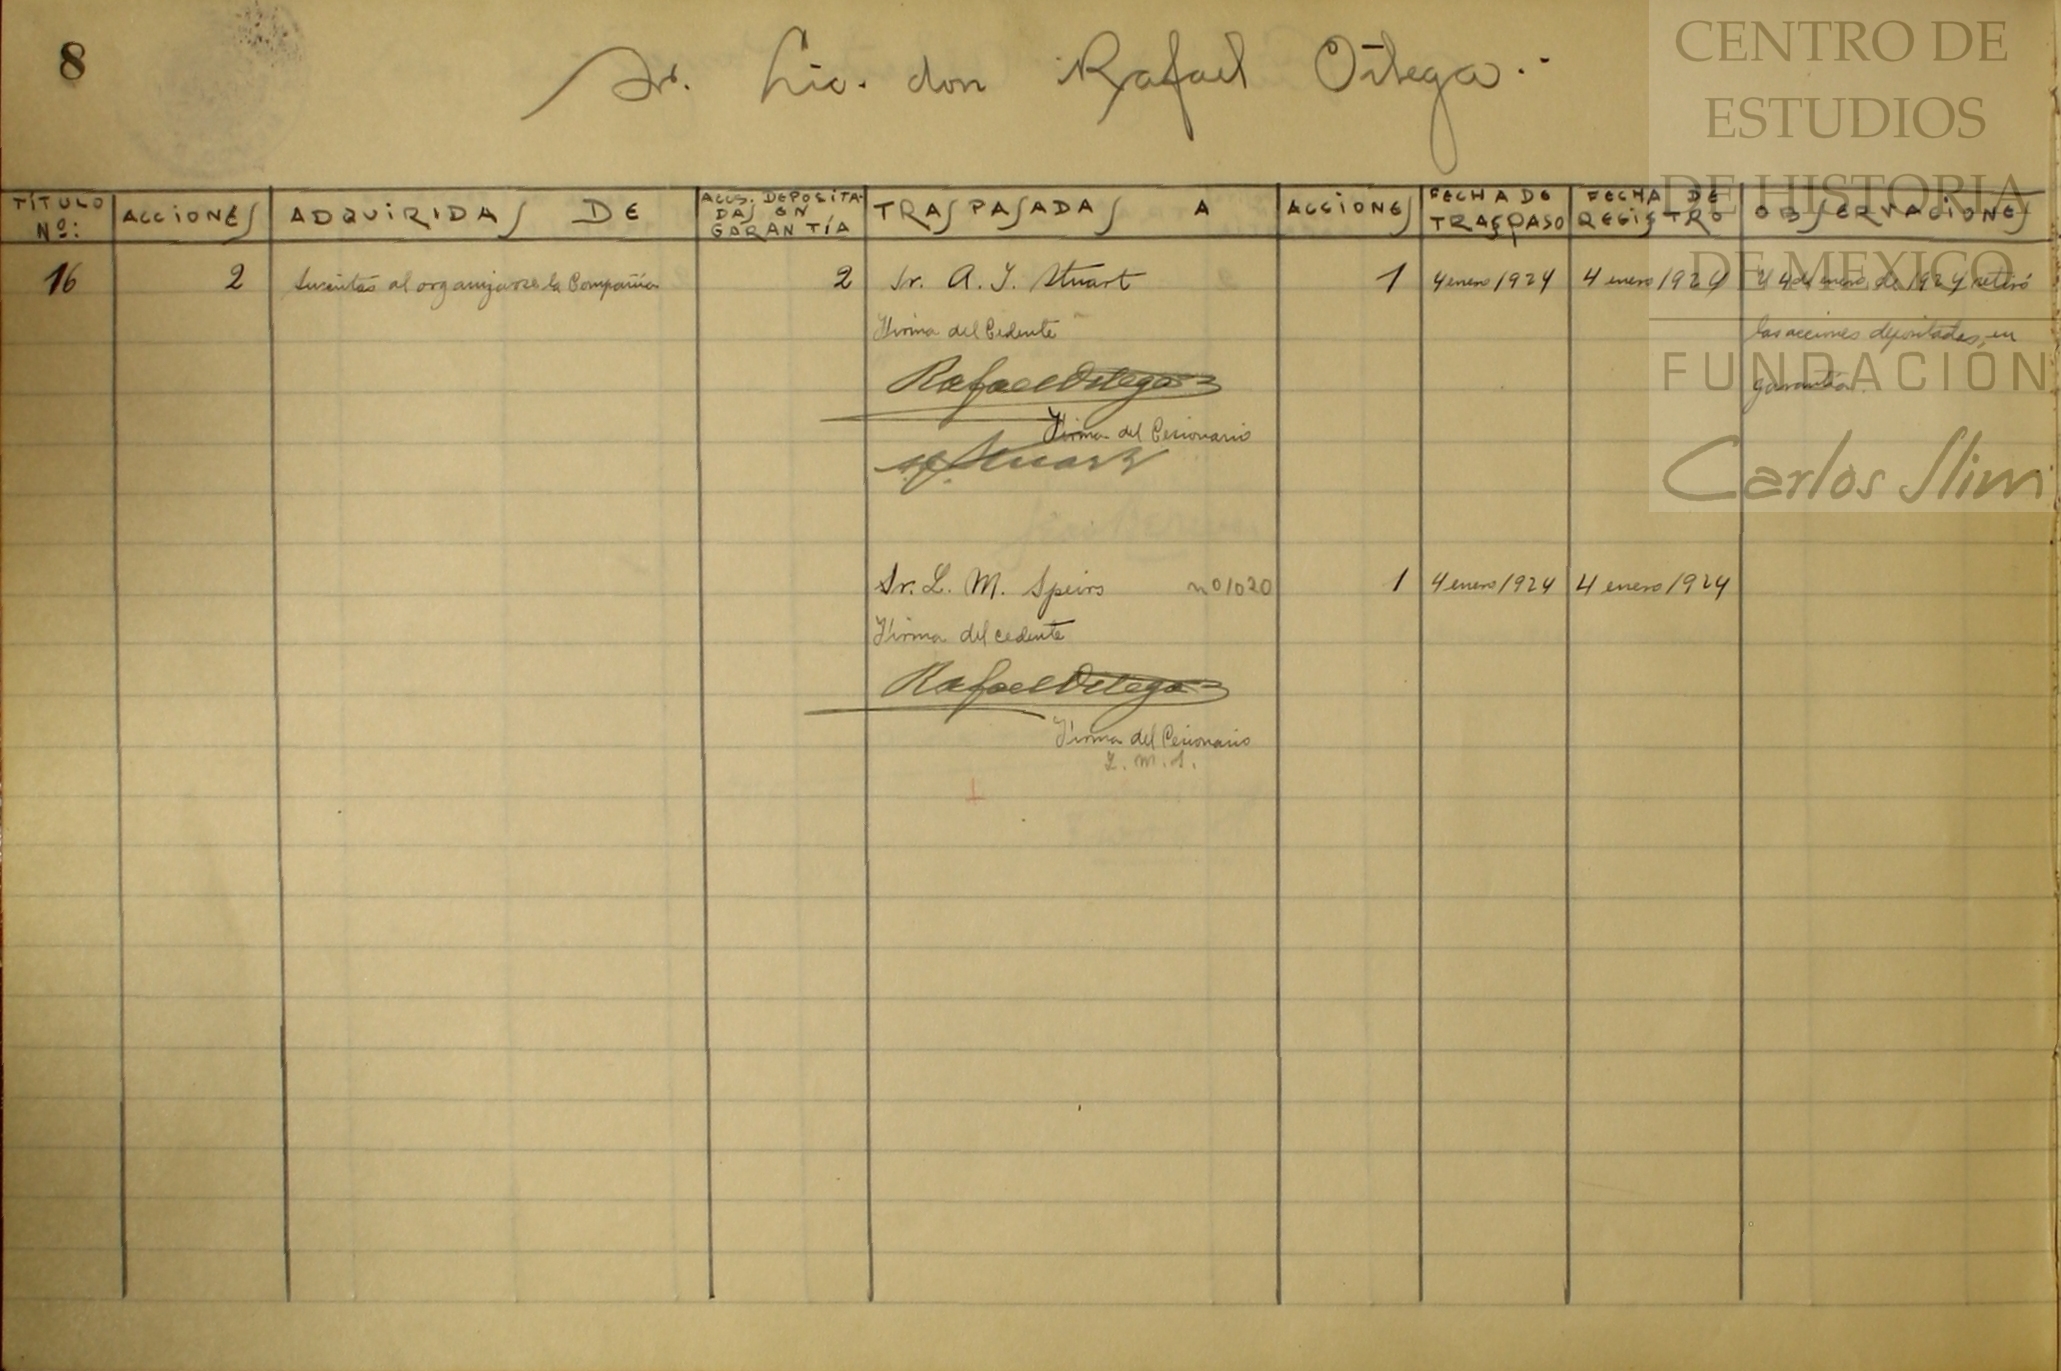 8
Sr. Lic. don Rafael Ortega.-
TÍTULO Nº:
ACCIONES
ADQUIRIDAS DE
ACCS. DEPOSITADAS EN GARANTÍA
TRASPASADAS A
ACCIONES
FECHA DE TRASPASO
FECHA DE REGISTRO
OBSERVACIONES
16 2 Suscritas al organizarse la Compañía 2 Sr. A. J. Stuart 1 4 enero 1924 4 enero 1924 4 de enero de 1924 retiró
Firma del Cedente las acciones depositadas, en
Rafael Ortega garantía.
Firma del Cesionario
Stuart
Sr. L. M. Speirs nº 1020 1 4 enero 1924 4 enero 1924
Firma del cedente
Rafael Ortega
Firma del Cesionario
L. M. S.
CENTRO DE
ESTUDIOS
DE HISTORIA
DE MEXICO
FUNDACIÓN
Carlos Slim